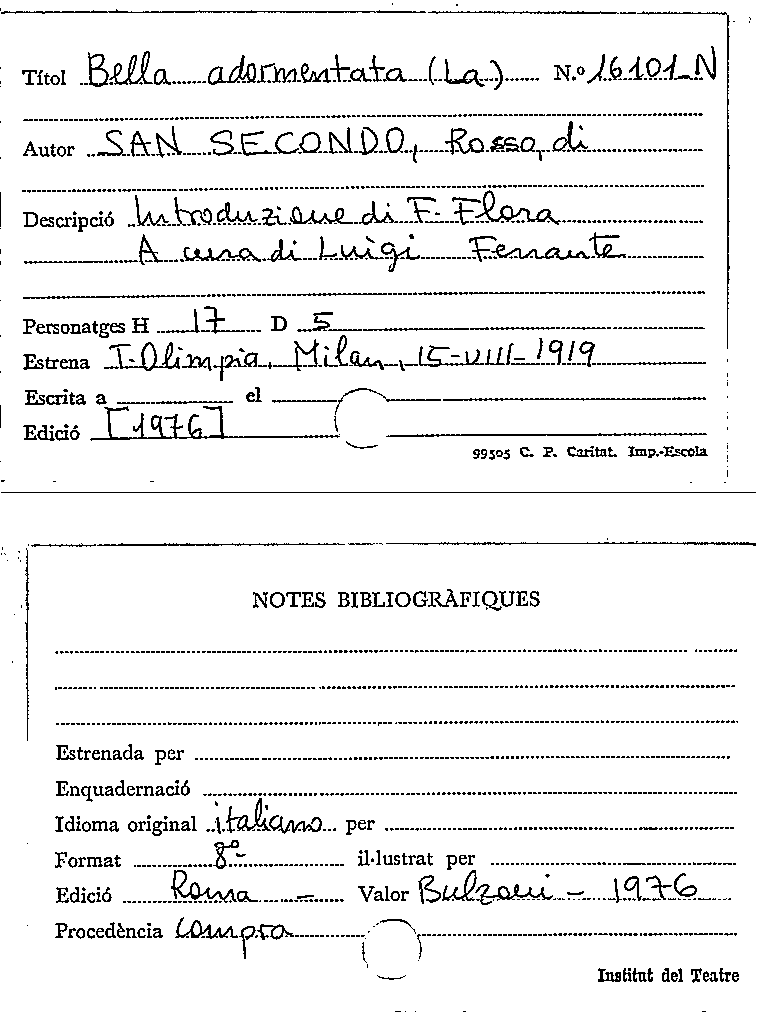 Títol Bella adormentata (La) N.º 16101-N
Autor SAN SECONDO, Rosso, di
Descripció Introduzione di F. Flora
A cura di Luigi Ferrante
Personatges H 17 D 5
Estrena T. Olimpia, Milan, 15-VIII-1919
Escrita a el
Edició [1976]
99505 C. P. Caritat. Imp.-Escola
NOTES BIBLIOGRÀFIQUES
Estrenada per
Enquadernació
Idioma original italiano per
Format 8º il·lustrat per
Edició Roma - Valor Bulzoni - 1976
Procedència compra
Institut del Teatre